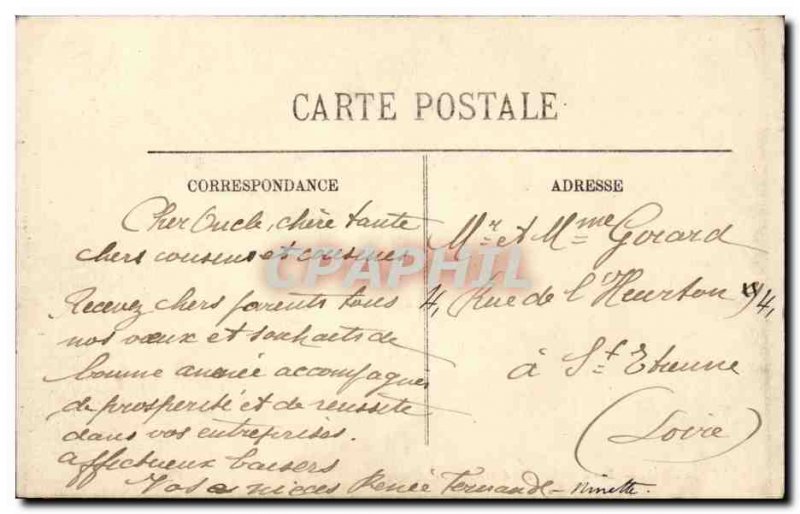 CARTE POSTALE
CORRESPONDANCE
Cher Oncle, chère tante
chers cousins et cousines
Recevez chers parents tous
nos vœux et souhaits de
bonne année accompagnés
de prosperité et de reussite
dans vos entreprises.
affectueux baisers
Vos nieces Renée Fernande - Ninette.
ADRESSE
Mr et Mme Gorard
4, Rue de l' 4,
à St Etienne
(Loire)
CPAPHIL